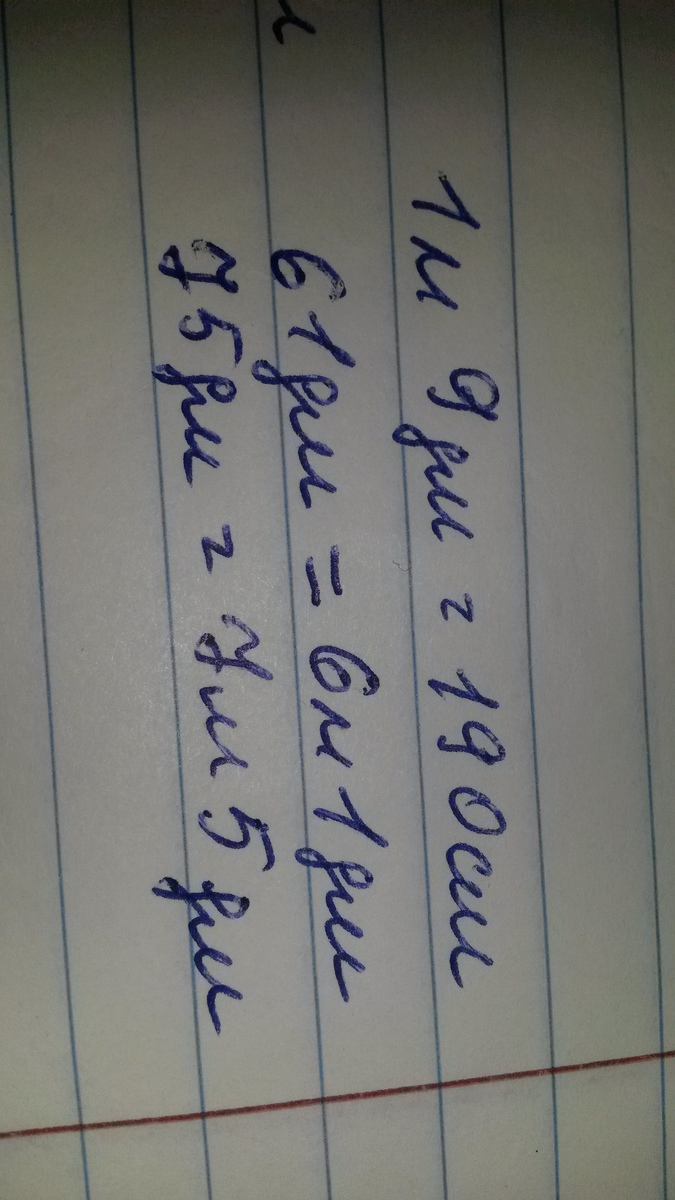 1м 9дм = 190см
61дм = 6м 1дм
75дм = 7м 5дм